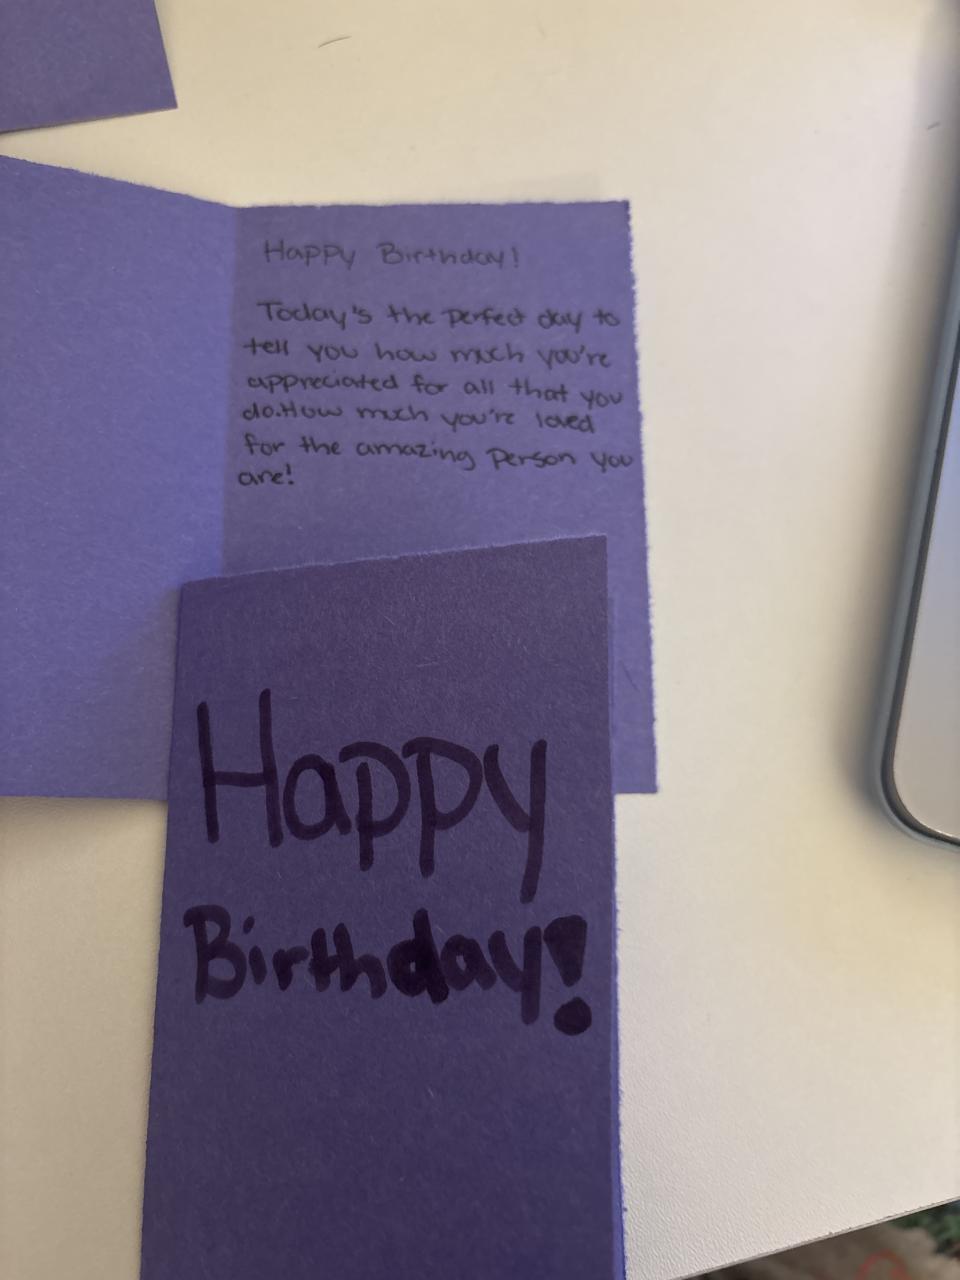 Happy Birthday!
Today's the perfect day to
tell you how much you're
appreciated for all that you
do.How much you're loved
for the amazing person you
are!
Happy
Birthday!